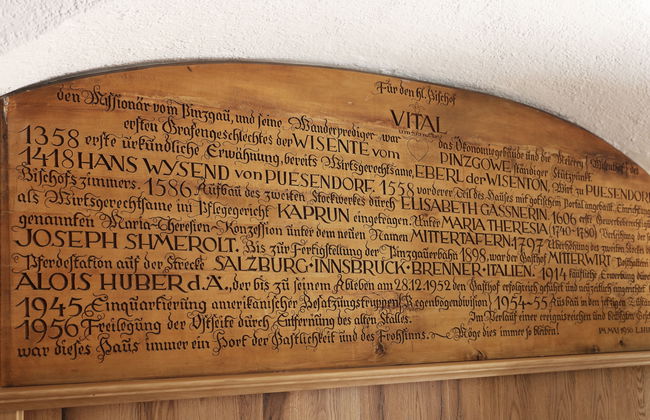 Für den hl. Bischof
den Missionär vom Pinzgau, und seine Wanderprediger war VITAL das Ökonomiegebäude und die Meierey
ersten Grafengeschlechtes der WISENTE vom PINZGOWE, ständiger Stützpunkt
1358 erste urkundliche Erwähnung, bereits Wirtsgerechtsame, EBERL der WISENTON, Wirt zu PUESENDORF
1418 HANS WYSEND von PUESENDORF. 1558 vorderer Teil des Hauses mit gotischem Portal
Bischofszimmers. 1586 Aufbau des zweiten Stockwerkes durch ELISABETH GASSNERIN. 1606 erste Gewerbe
als Wirtsgerechtsame im Pflegegericht KAPRUN eingetragen. Unter MARIA THERESIA (1740-1780)
genannten Maria-Theresien-Konzession unter dem neuen Namen MITTERTÄFERN 1797
JOSEPH SHMEROLT. Bis zur Fertigstellung der Pinzgauerbahn 1898, war der Gasthof MITTERWIRT
Pferdestation auf der Strecke SALZBURG·INNSBRUCK·BRENNER·ITALIEN. 1914 käufliche Erwerbung
ALOIS HUBER d.Ä., der bis zu seinem Ableben am 28.12.1952 den Gasthof erfolgreich geführt und neuzeitlich
1945 Einquartierung amerikanischer Besatzungstruppen (Regenbogendivision) 1954-55 Ausbau in den jetzigen
1956 Freilegung der Ostseite durch Entfernung des alten Stalles. Im Verlauf einer ereignisreichen und bewegten
war dieses Haus immer ein Hort der Gastlichkeit und des Frohsinns. Möge dies immer so bleiben! IM MAI 1956